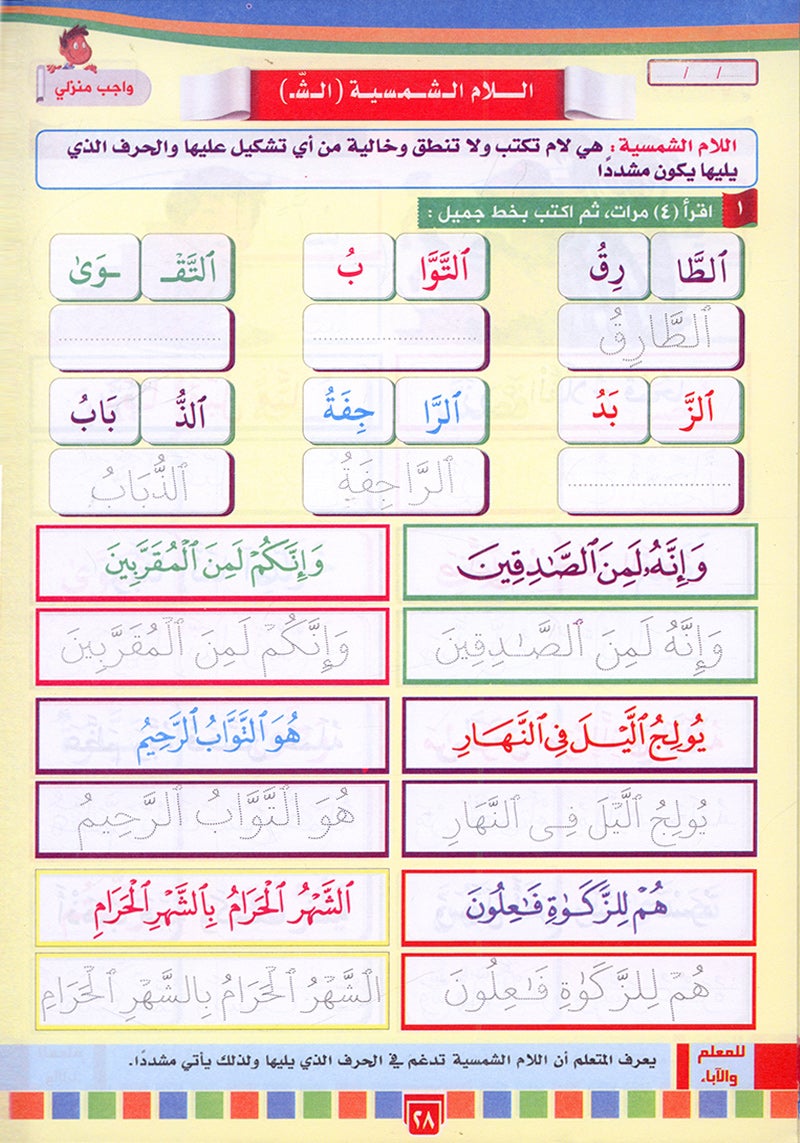 واجب منزلي
/ /
اللام الشمسية (الشّـ)
اللام الشمسية : هي لام تكتب ولا تنطق وخالية من أي تشكيل عليها والحرف الذي
يليها يكون مشددًا
١ اقرأ (٤) مرات، ثم اكتب بخط جميل :
ٱلطَّا رِقُ ٱلتَّوَّا بُ ٱلتَّقْـ ـوَىٰ
ٱلطَّارِقُ
ٱلزَّ بَدُ ٱلرَّا جِفَةُ ٱلذُّ بَابُ
ٱلرَّاجِفَةُ ٱلذُّبَابُ
وَإِنَّهُۥ لَمِنَ ٱلصَّٰدِقِينَ وَإِنَّكُمْ لَمِنَ ٱلْمُقَرَّبِينَ
وَإِنَّهُ لَمِنَ ٱلصَّٰدِقِينَ وَإِنَّكُمْ لَمِنَ ٱلْمُقَرَّبِينَ
يُولِجُ ٱلَّيْلَ فِى ٱلنَّهَارِ هُوَ ٱلتَّوَّابُ ٱلرَّحِيمُ
يُولِجُ ٱلَّيْلَ فِى ٱلنَّهَارِ هُوَ ٱلتَّوَّابُ ٱلرَّحِيمُ
هُمْ لِلزَّكَوٰةِ فَٰعِلُونَ ٱلشَّهْرُ ٱلْحَرَامُ بِٱلشَّهْرِ ٱلْحَرَامِ
هُمْ لِلزَّكَوٰةِ فَٰعِلُونَ ٱلشَّهْرُ ٱلْحَرَامُ بِٱلشَّهْرِ ٱلْحَرَامِ
للمعلم
والآباء
يعرف المتعلم أن اللام الشمسية تدغم في الحرف الذي يليها ولذلك يأتي مشددًا.
٢٨